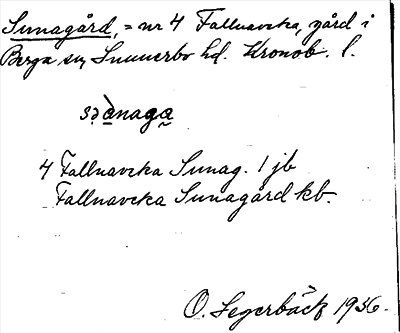 Sunagård, = nr 4 Fallnaveka, gård i
Berga sn, Sunnerbo hd. Kronob. l.
4 Fallnaveka Sunag. 1 jb
Fallnaveka Sunagård kb.
O. Segerbäck 1936.